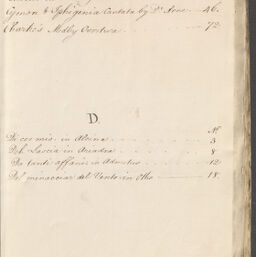 Cymon & Iphigenia Cantata by Dr. Arne 46.
Charke's Medley Overture 72.
D.
No.
Di cor mio, in Alcina 3
Deh Lascia in Ariadna 8
Da tanti affanni in Admetus 12
Del minacciar del Vento, in Otho 18.